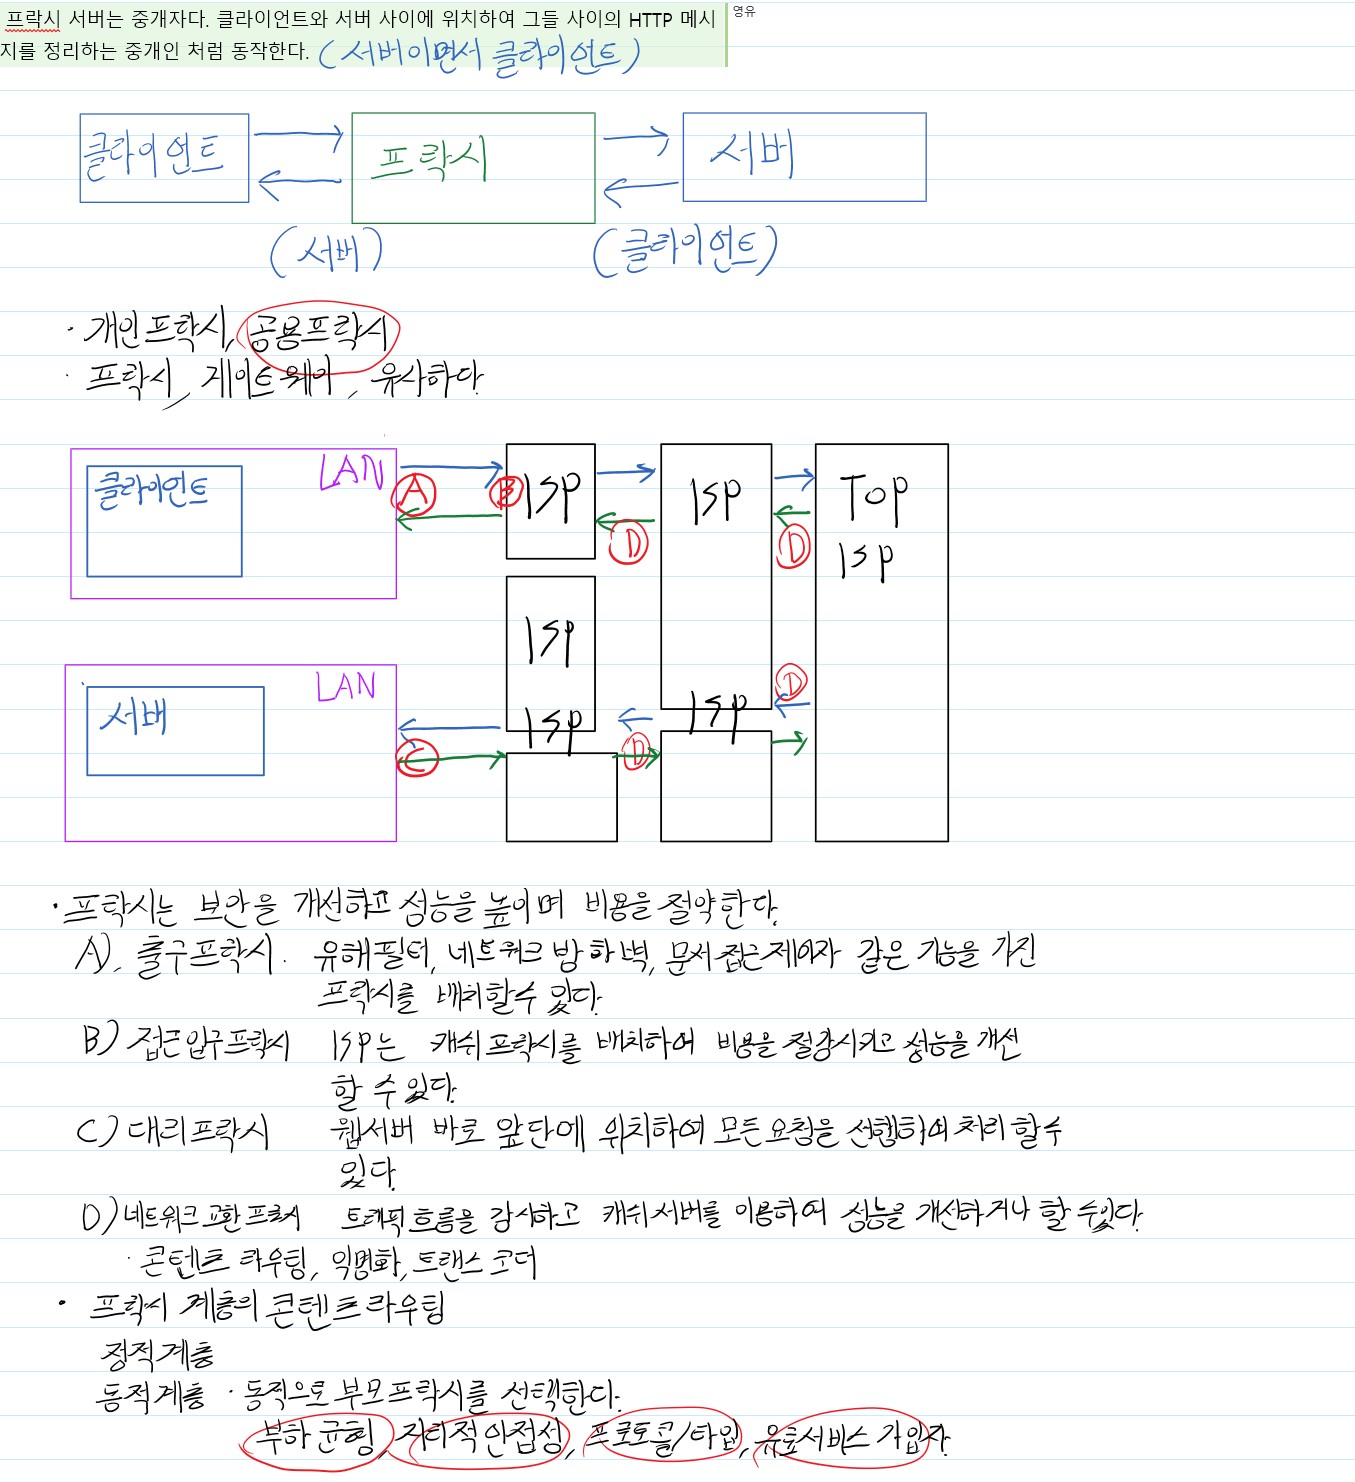 프락시 서버는 중개자다. 클라이언트와 서버 사이에 위치하여 그들 사이의 HTTP 메시
영유
지를 정리하는 중개인 처럼 동작한다. (서버이면서 클라이언트)
클라이언트 프락시 서버
(서버) (클라이언트)
· 개인프락시, 공용프락시
· 프락시, 게이트웨이, 유사하다.
LAN
클라이언트 A B ISP ISP TOP
D D ISP
ISP
LAN D
서버 ISP ISP
C D
· 프락시는 보안을 개선하고 성능을 높이며 비용을 절약한다.
A). 출구프락시. 유해필터, 네트워크 방화벽, 문서접근제어자 같은 기능을 가진
프락시를 배치할수 있다.
B) 접근입구프락시 ISP는 캐쉬프락시를 배치하여 비용을 절감시키고 성능을 개선
할 수 있다.
C) 대리프락시 웹서버 바로 앞단에 위치하여 모든요청을 선행하여 처리할수
있다.
D) 네트워크교환프락시 트래픽흐름을 감시하고 캐쉬서버를 이용하여 성능을 개선하거나 할 수있다.
· 콘텐트 라우팅, 익명화, 트랜스코더
· 프락시 계층의 콘텐트라우팅
정적계층
동적계층 · 동적으로 부모프락시를 선택한다.
부하균형, 지리적인접성, 프로토콜/타입, 유료서비스 가입자.